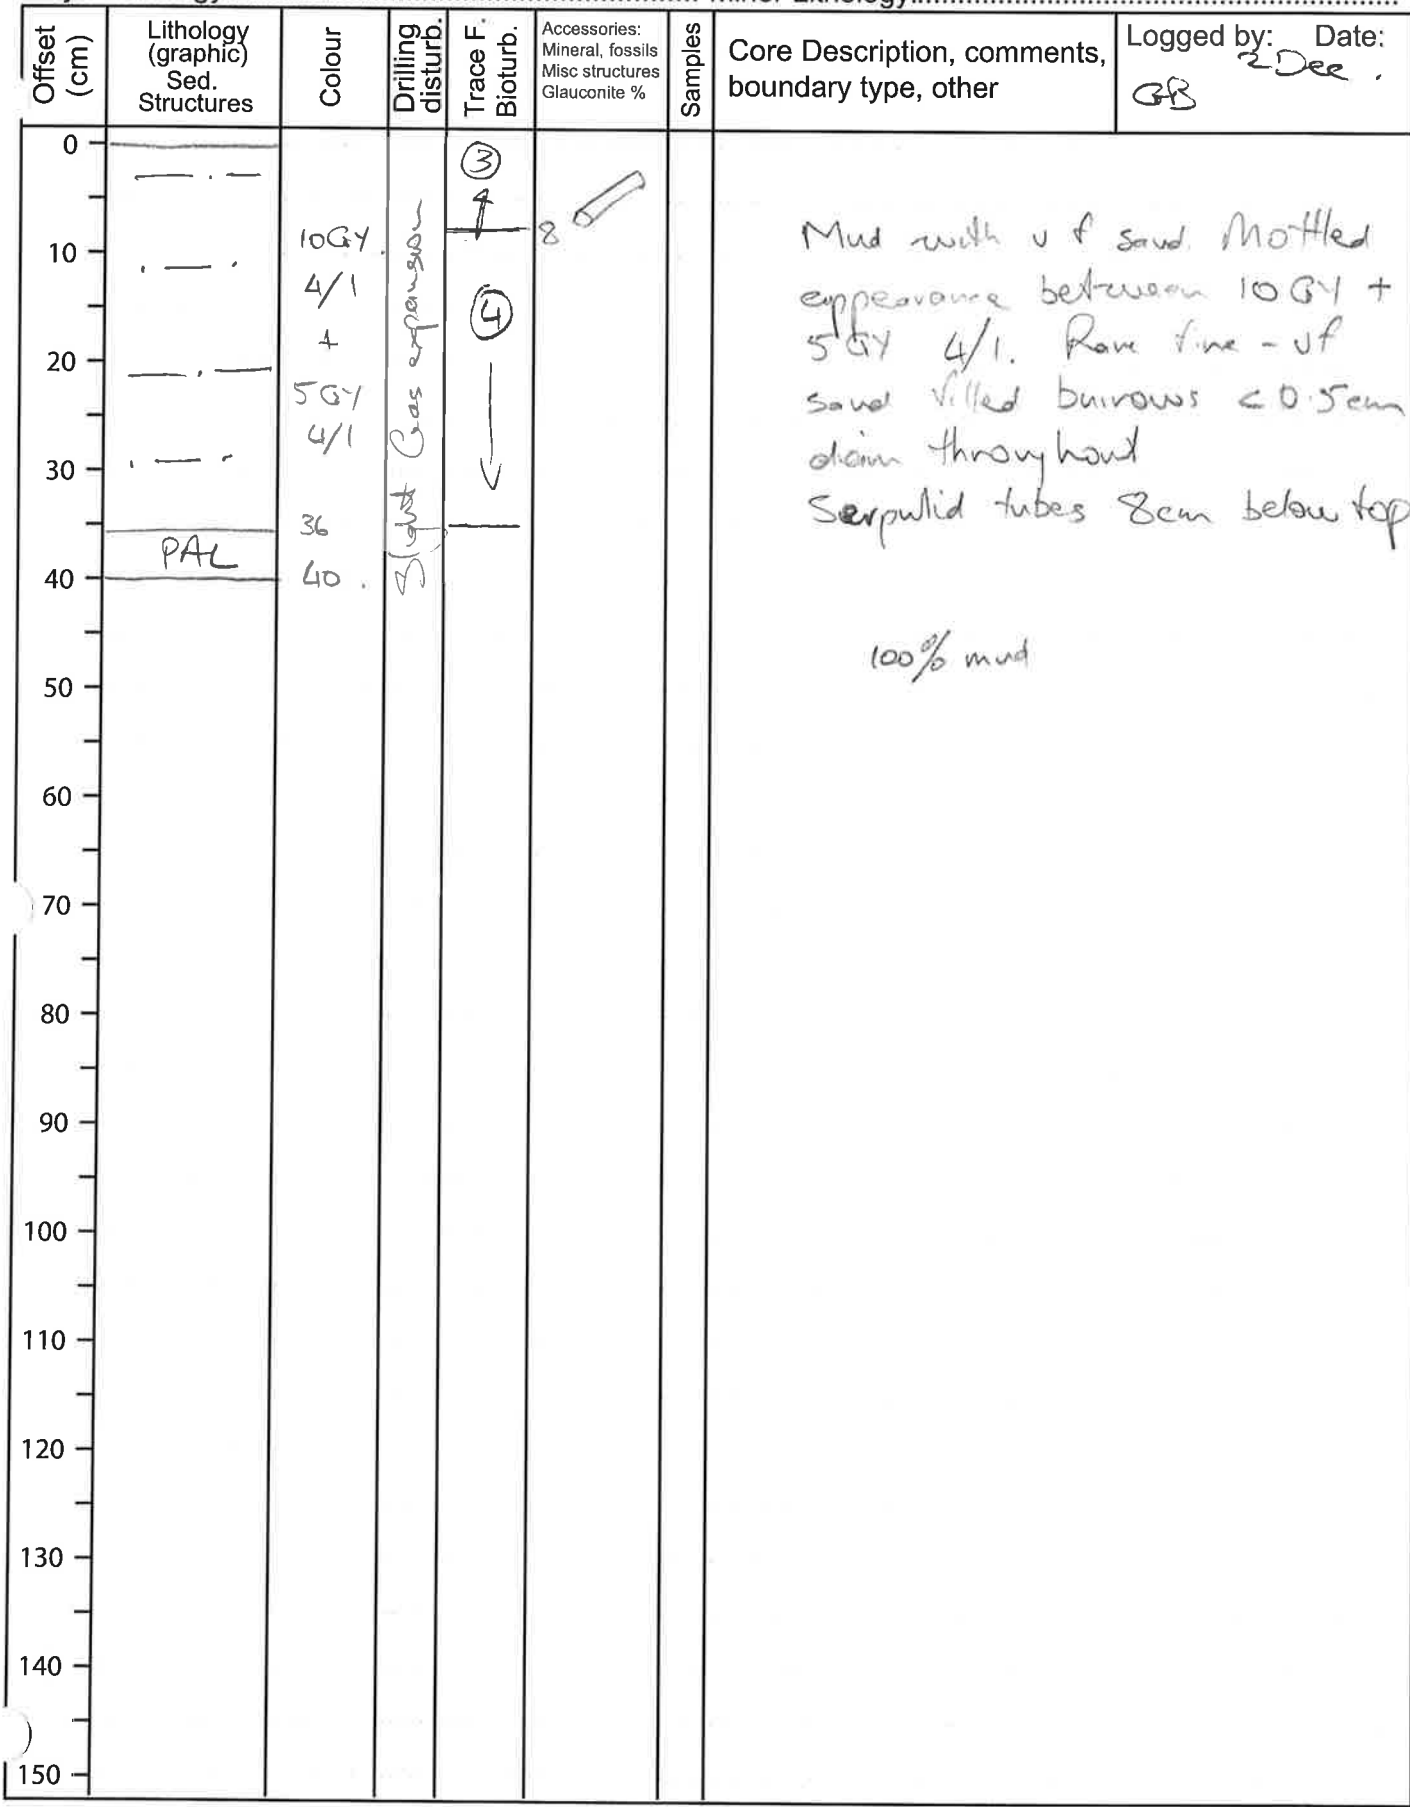 Minor Lithology
Offset (cm)
Lithology
(graphic)
Sed.
Structures
Colour
Drilling
disturb.
Trace F.
Bioturb.
Accessories:
Mineral, fossils
Misc structures
Glauconite %
Samples
Core Description, comments,
boundary type, other
Logged by: Date:
2 Dec.
GB
0
10
20
30
40
50
60
70
80
90
100
110
120
130
140
150
PAL
10GY
4/1
+
5GY
4/1
36
40.
Slight Gas expansion
3
4
8
Mud with vf sand. Mottled
appearance between 10GY +
5GY 4/1. Rare fine - vf
sand filled burrows <0.5cm
diam throughout
Serpulid tubes 8cm below top
100% mud